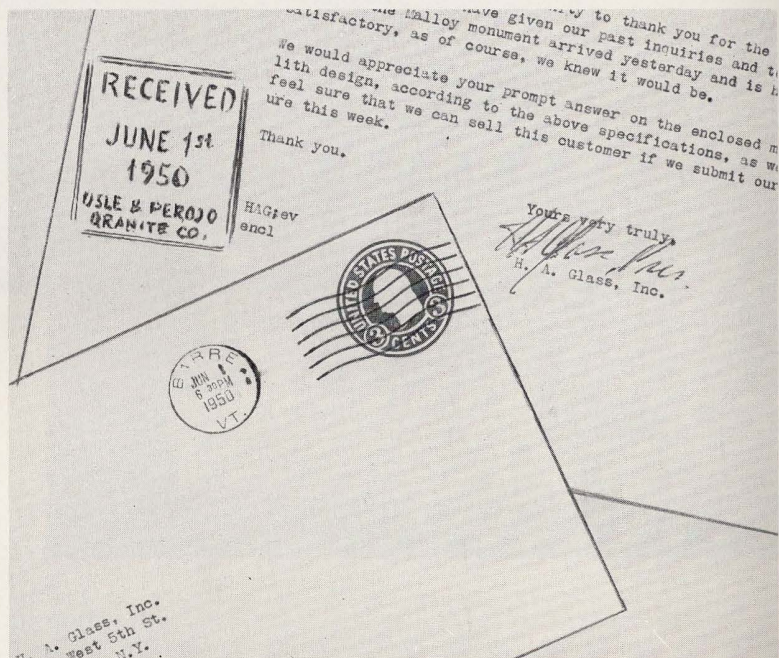 ty to thank you for the
have given our past inquiries and t
the Malloy monument arrived yesterday and is h
atisfactory, as of course, we knew it would be.
We would appreciate your prompt answer on the enclosed m
lith design, according to the above specifications, as w
feel sure that we can sell this customer if we submit our
ure this week.
Thank you.
RECEIVED
JUNE 1st
1950
USLE & PEROJO
GRANITE CO.
HAG;ev
encl
Yours very truly,
H. A. Glass, Inc.
UNITED STATES POSTAGE
3 CENTS 3
BARRE
JUN 1
6 30PM
1950
VT.
A. Glass, Inc.
West 5th St.
N.Y.